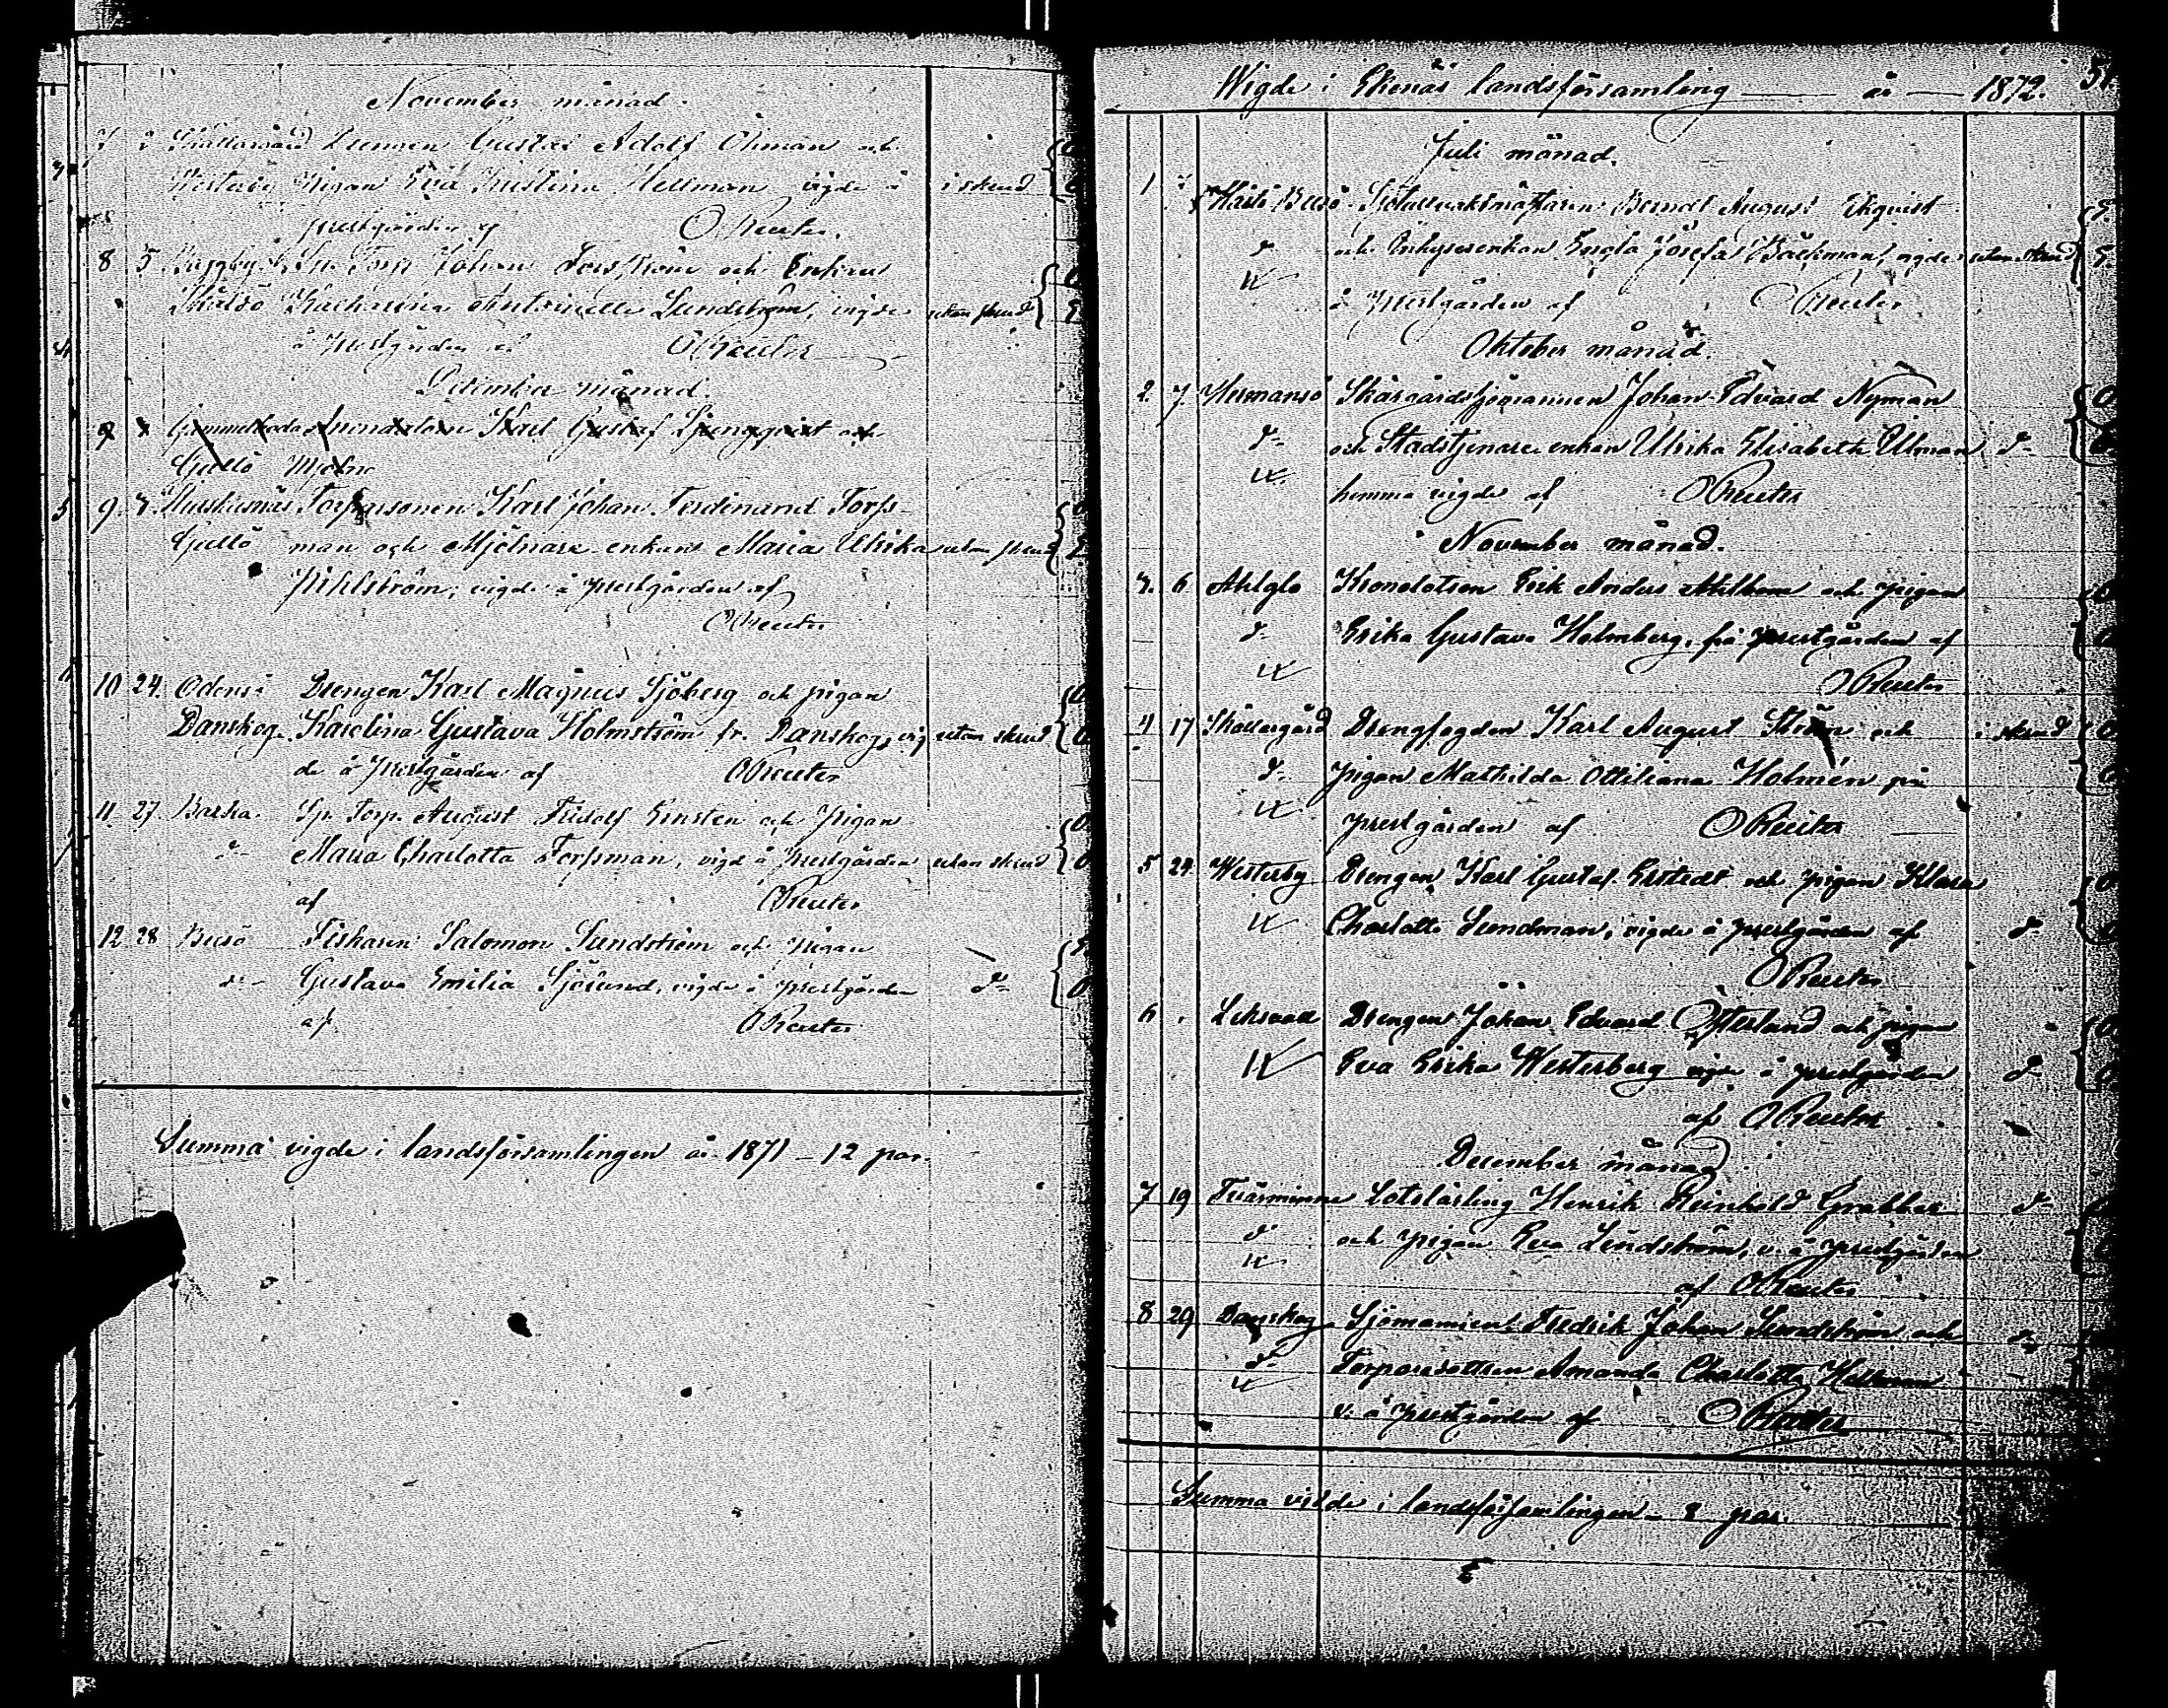 November månad.
7 2 Skällargård Drengen Gustaf Adolf Öhman och
Westerby Pigan Eva Kristina Hellman vigde å i skrud
prestgården af OReuter.
8 5 Sp. Torp. Johan Forsström och Enkan
Skåldö Katharina Antoinette Lundström, vigde utan skrud
å prestgården af OReuter
December månad.
9 Gammelboda Kronolotsen Karl Gustaf Ljungqvist och
Gullö Mjölna
9. 3. Torparsonen Karl Johan Ferdinand Forss-
Gullö man och Mjölnare-enkan Maria Ulrika utan skrud
Pihlström, vigde å prestgården af
OReuter
10 24. Odensö Drengen Karl Magnus Sjöberg och pigan
Danskog. Karolina Gustava Holmström fr. Danskog, vig utan skrud
de å prestgården af OReuter
11. 27. Baska. Sp. Torp. August Fridolf Ernsten och Pigan
d- Maria Charlotta Forssman, vigd å prestgården utan skrud
af OReuter
12 28 Busö Fiskaren Salomon Sundström och pigan
d- Gustava Emilia Sjölund, vigde å prestgården d-
af OReuter
Summa vigde i landsförsamlingen år 1871 - 12 par.
Wigde i Ekenäs landsförsamling — år — 1872. 51.
Juli månad.
1 Hästö Busö Berndt August Ekqvist
d och Inhysesenkan Engla Josefa Bäckman, vigde utan skrud
å Prestgården af OReuter
Oktober månad.
2. 7. Hermansö Skärgårdssjömannen Johan Edvard Nyman
d- och Stadstjenare enkan Ulrika Elisabeth Ulman d-
hemma vigde af OReuter
November månad.
3. 6 Ahlglo Kronolotsen Erik Anders Ahlbom och pigan
d- Erika Gustava Holmberg, på prestgården af
OReuter
4 17 Skällargård Drengfogden Karl August Ström och i skrud
d- pigan Mathilda Ottiliana Holmén på
prestgården af OReuter
5 24 Westerby Drengen Karl Gustaf Erstedt och pigan Klara
Charlotta Sundman, vigde å prestgården af d-
OReuter
6 . Leksvall Drengen Johan Edvard Österlund och pigan
Eva Erika Westerberg vigde å prestgården d-
af OReuter
December månad.
7 19 Tvärminne Lotslärling Henrik Reinhold Grabber d-
d och pigan Eva Lindström, v. å prestgården
af OReuter
8 29 Danskog Sjömannen Fredrik Johan Sundström och d-
d- Torparedottren Amanda Charlotta Hellman
v. å prestgården af OReuter
Summa vigde i landsförsamlingen - 8 par.